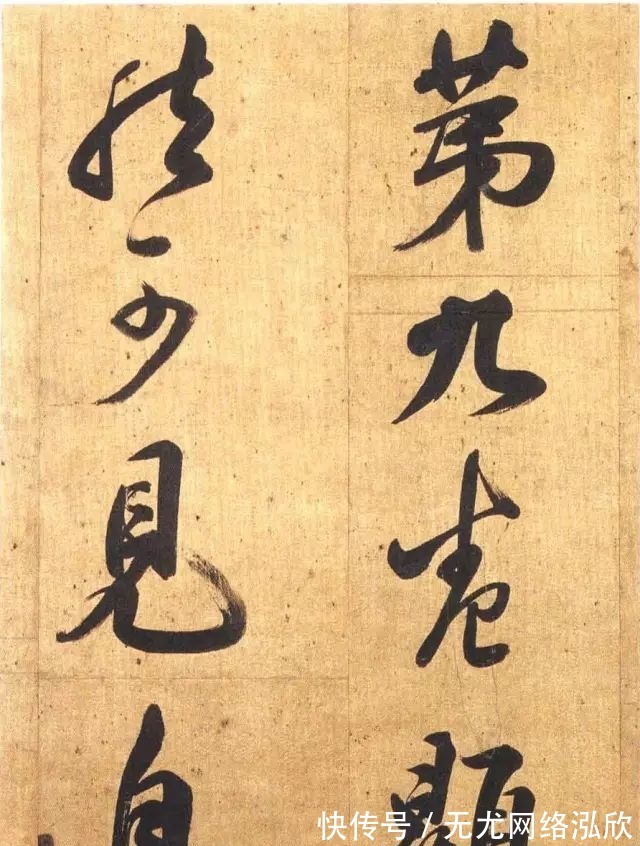 第九卷
少見
快传号 / 无尤网络泓欣